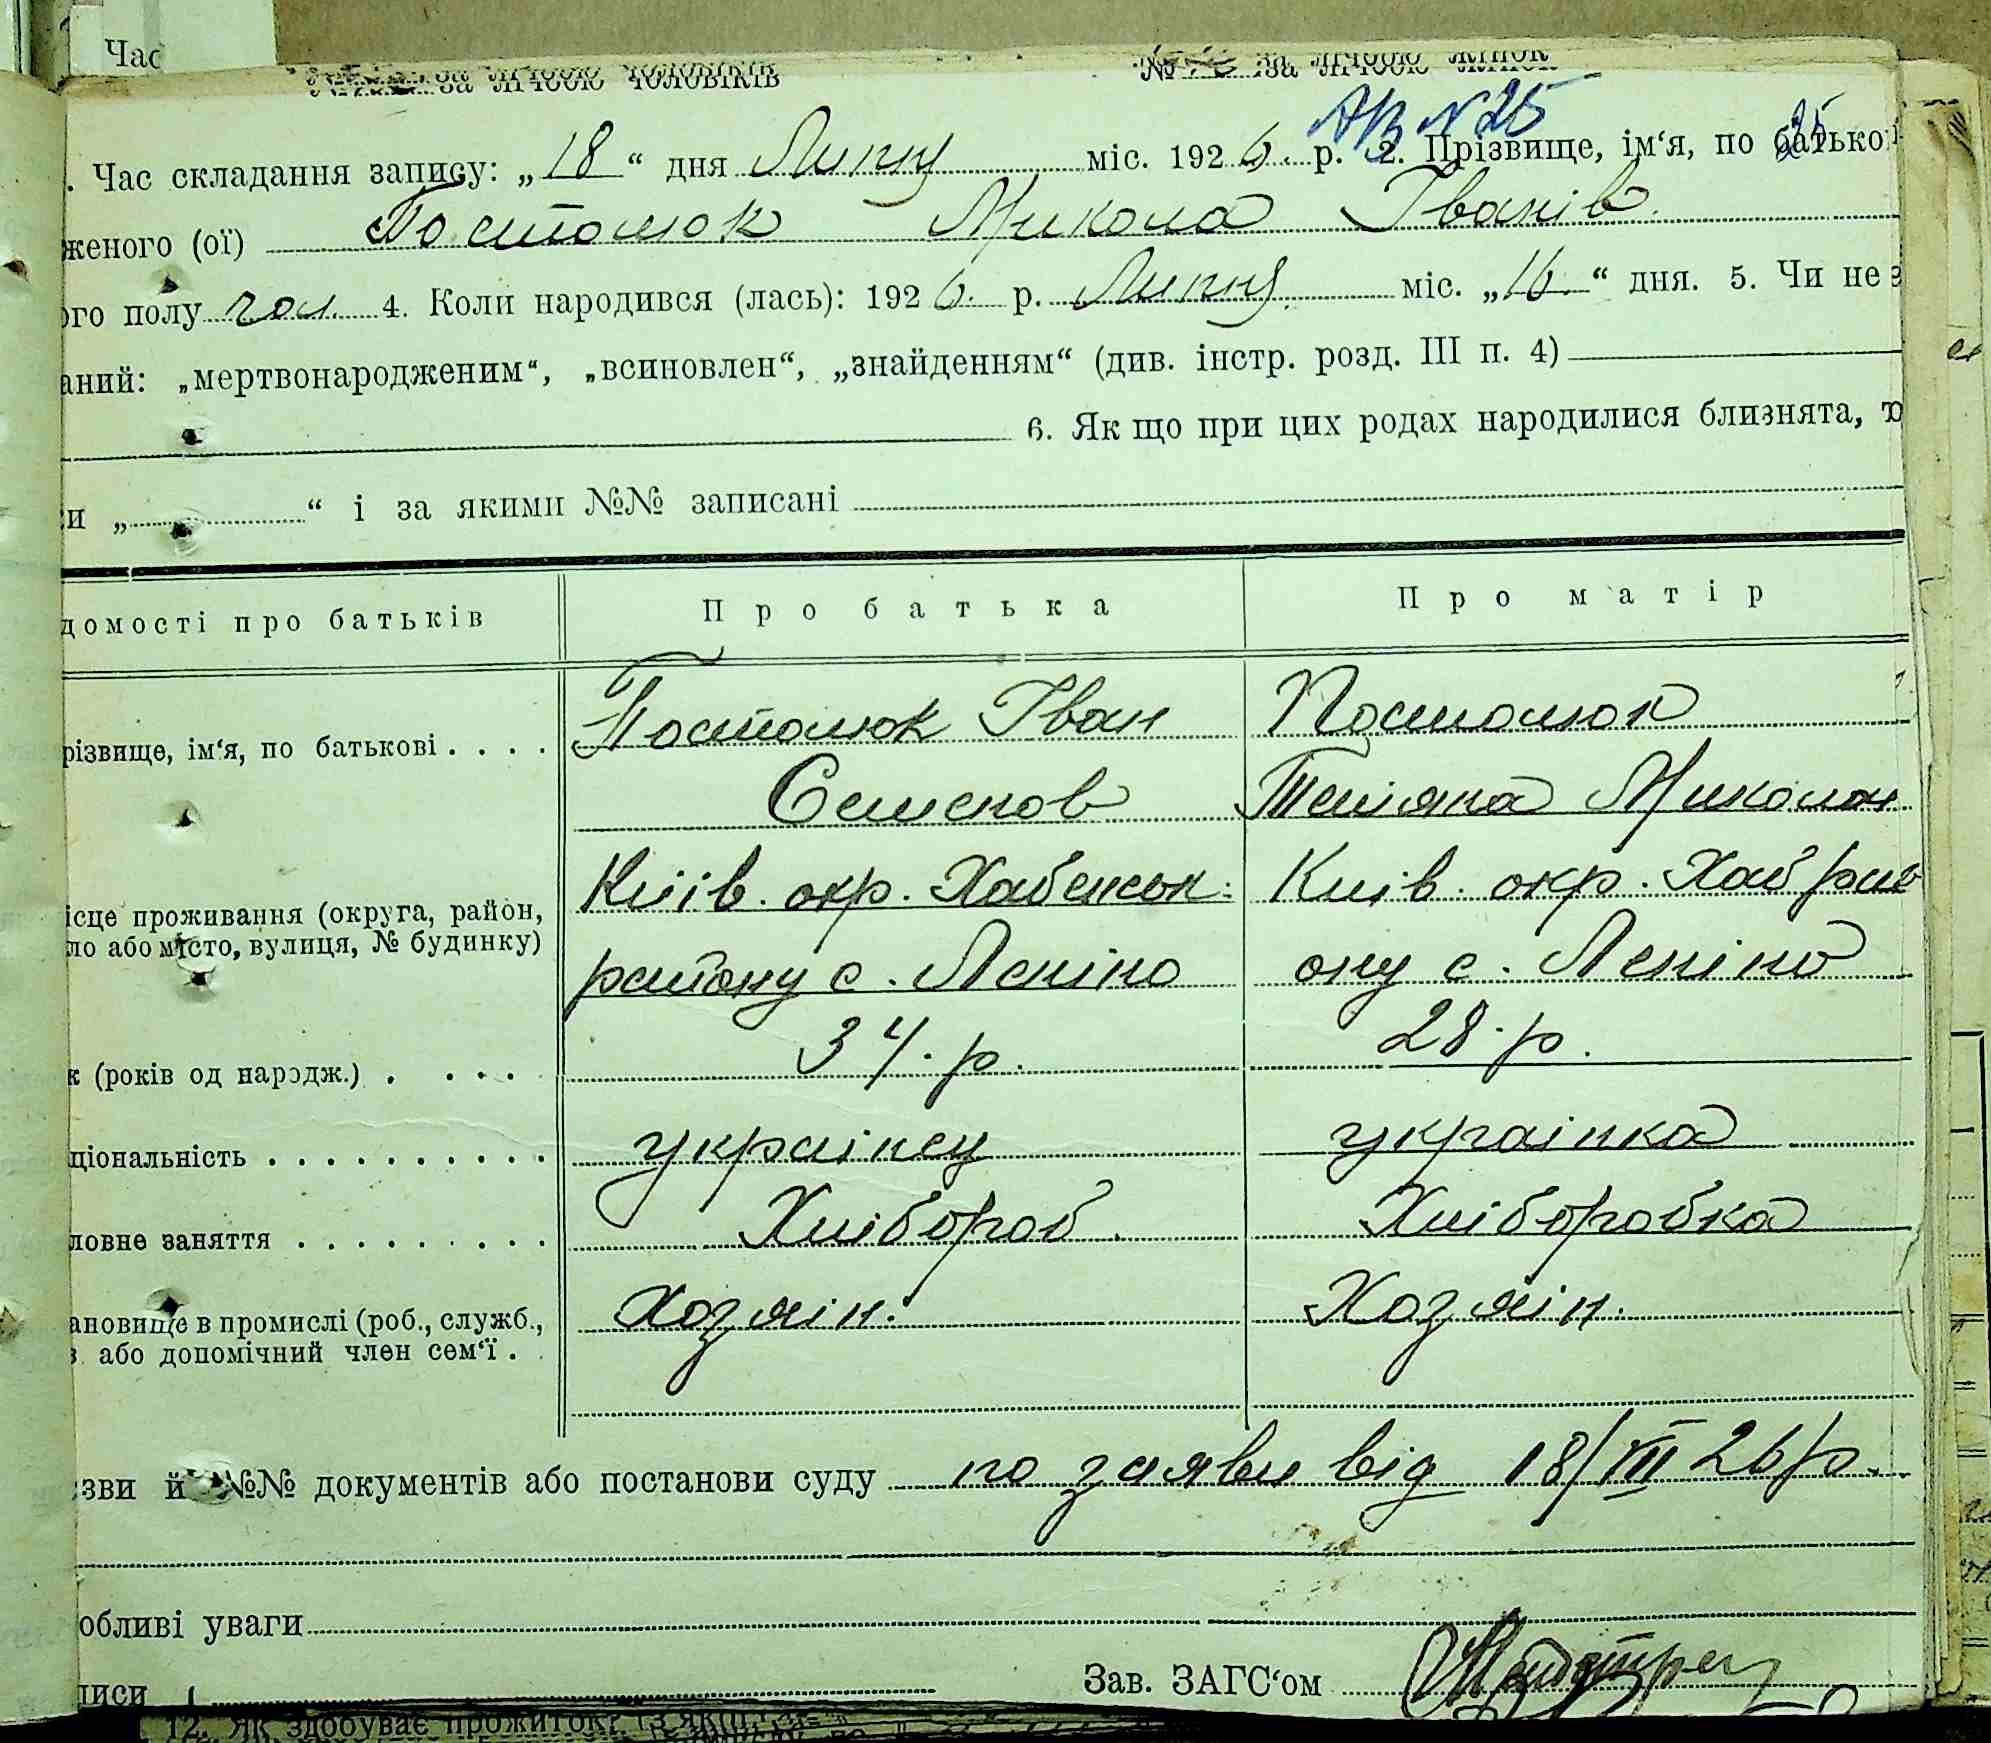 Час
за лічбою чоловіків № за лічбою жінок
АВ N 25 25
. Час складання запису: „18“ дня Липня міс. 1926. р. 2. Прізвище, ім‘я, по батькові
женого (ої) Постолюк Микола Іванів
ого полу чол. 4. Коли народився (лась): 1926. р. Липня міс. „16“ дня. 5. Чи не з
аний: „мертвонародженим“, „всиновлен“, „знайденням“ (див. інстр. розд. III п. 4)
6. Як що при цих родах народилися близнята, то
и „ “ і за якими №№ записані
домості про батьків Про батька Про матір
різвище, ім‘я, по батькові . . . . Постолюк Іван Постолюк
Семенов Тетяна Миколає
Київ. окр. Хабенськ. Київ. окр. Хаб рай
ісце проживання (округа, район,
ло або місто, вулиця, № будинку)
району с. Леніно ону с. Леніно
к (років од народж.) . . . . 34. р. 28. р.
ціональність . . . . . . . . . . українец українка
ловне заняття . . . . . . . . . Хлібороб Хліборобка
ановище в промислі (роб., служб., Хозяін. Хозяін.
з або допомічний член сем‘ї .
зви й №№ документів або постанови суду по заяви від 18/VII 26 р.
обливі уваги
писи Зав. ЗАГС‘ом
12. Як здобуває прожиток: